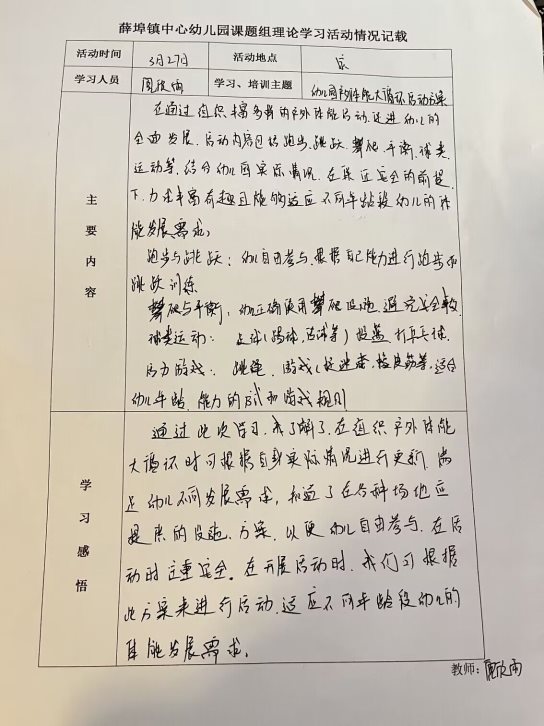 薛埠镇中心幼儿园课题组理论学习活动情况记载
活动时间 3月27日 活动地点
学习人员 周欣雨 学习、培训主题 幼儿园户外体能大循环活动方案
主要内容
在通过组织丰富多样的户外体能活动,促进幼儿的
全面发展。活动内容包括跑步、跳跃、攀爬、平衡、球类
运动等,结合幼儿园实际情况,在保证安全的前提
下,力求丰富有趣且能够适应不同年龄段幼儿的体
能发展需求。
跑步与跳跃:幼儿自由参与,根据自己能力进行跑步和
跳跃训练
攀爬与平衡:幼儿正确使用攀爬设施,避免安全事故
球类运动:足球(踢球、 等)投篮 打乒乓球
活力游戏:跳绳、游戏(捉迷藏、 等),适合
幼儿年龄、能力的形式和游戏规则
学习感悟
通过此次学习,我了解了,在组织户外体能
大循环时可根据自身实际情况进行更新,满
足幼儿不同发展需求,知道了在各种场地应
提供的设施、方案,以便幼儿自由参与,在活
动时注重安全。在开展活动时,我们可根据
此方案来进行活动,适应不同年龄段幼儿的
体能发展需求。
教师:周欣雨